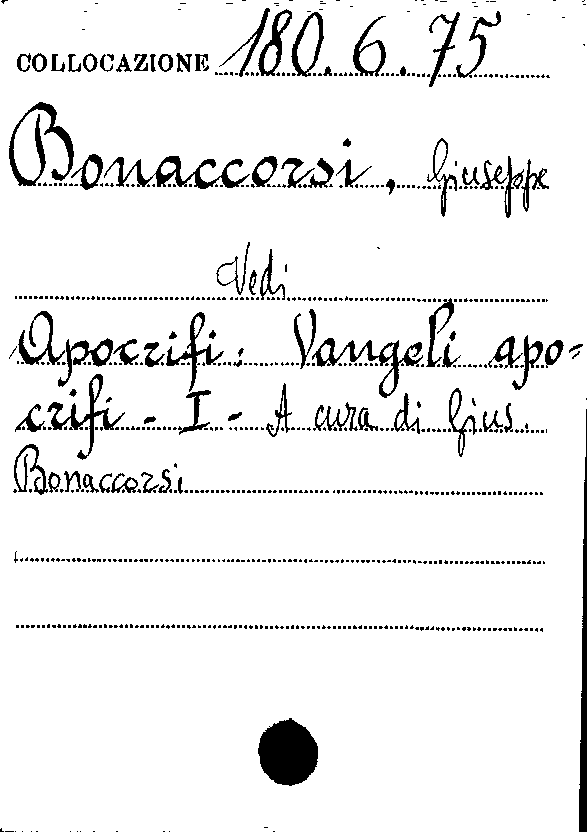 COLLOCAZIONE 180.6.75
Bonaccorsi, Giuseppe
Vedi
Apocrifi: Vangeli apo=
crifi - I - A cura di Gius.
Bonaccorsi